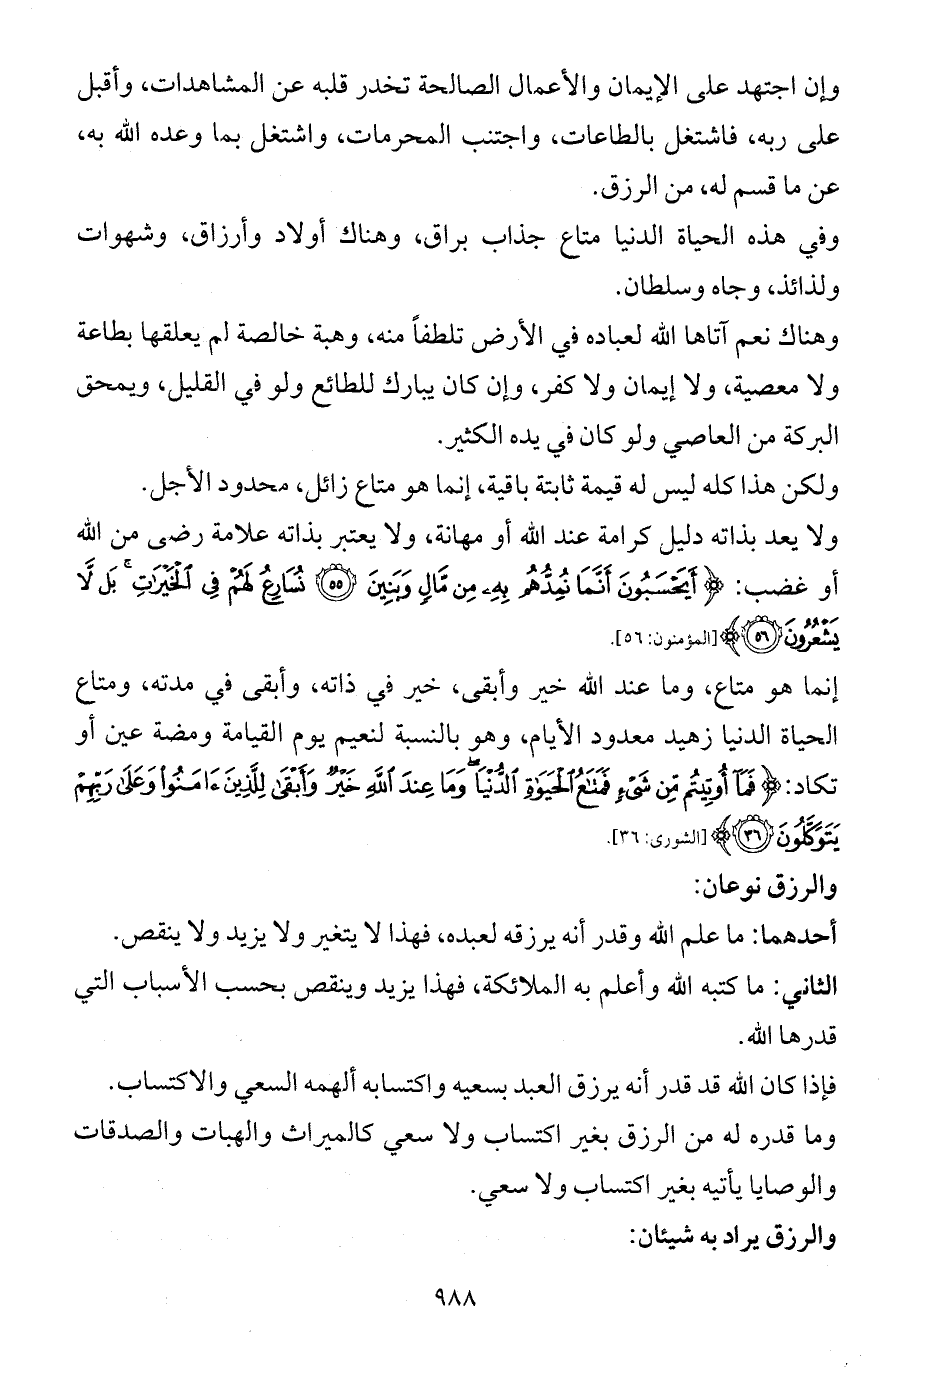 وإن اجتهد على الإيمان والأعمال الصالحة تخدر قلبه عن المشاهدات، وأقبل
على ربه، فاشتغل بالطاعات، واجتنب المحرمات، واشتغل بما وعده الله به،
عن ما قسم له، من الرزق.
وفي هذه الحياة الدنيا متاع جذاب براق، وهناك أولاد وأرزاق، وشهوات
ولذائذ، وجاه وسلطان.
وهناك نعم آتاها الله لعباده في الأرض تلطفاً منه، وهبة خالصة لم يعلقها بطاعة
ولا معصية، ولا إيمان ولا كفر، وإن كان يبارك للطائع ولو في القليل، ويمحق
البركة من العاصي ولو كان في يده الكثير.
ولكن هذا كله ليس له قيمة ثابتة باقية، إنما هو متاع زائل، محدود الأجل.
ولا يعد بذاته دليل كرامة عند الله أو مهانة، ولا يعتبر بذاته علامة رضى من الله
أو غضب: ﴿أَيَحْسَبُونَ أَنَّمَا نُمِدُّهُم بِهِۦ مِن مَّالٍ وَبَنِينَ ٥٥ نُسَارِعُ لَهُمْ فِي ٱلْخَيْرَٰتِۚ بَل لَّا
يَشْعُرُونَ ٥٦﴾ [المؤمنون: ٥٦].
إنما هو متاع، وما عند الله خير وأبقى، خير في ذاته، وأبقى في مدته، ومتاع
الحياة الدنيا زهيد معدود الأيام، وهو بالنسبة لنعيم يوم القيامة ومضة عين أو
تكاد: ﴿فَمَآ أُوتِيتُم مِّن شَيْءٍ فَمَتَٰعُ ٱلْحَيَوٰةِ ٱلدُّنْيَاۖ وَمَا عِندَ ٱللَّهِ خَيْرٌ وَأَبْقَىٰ لِلَّذِينَ ءَامَنُوا۟ وَعَلَىٰ رَبِّهِمْ
يَتَوَكَّلُونَ ٣٦﴾ [الشورى: ٣٦].
والرزق نوعان:
أحدهما: ما علم الله وقدر أنه يرزقه لعبده، فهذا لا يتغير ولا يزيد ولا ينقص.
الثاني: ما كتبه الله وأعلم به الملائكة، فهذا يزيد وينقص بحسب الأسباب التي
قدرها الله.
فإذا كان الله قد قدر أنه يرزق العبد بسعيه واكتسابه ألهمه السعي والاكتساب.
وما قدره له من الرزق بغير اكتساب ولا سعي كالميراث والهبات والصدقات
والوصايا يأتيه بغير اكتساب ولا سعي.
والرزق يراد به شيئان:
٩٨٨